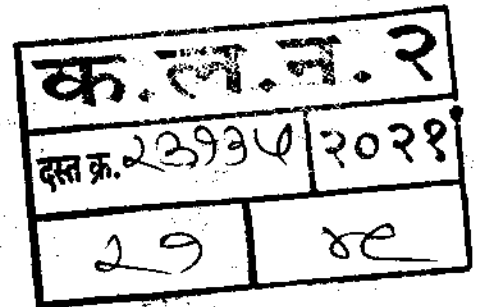 क.ल.न.२
दस्त क्र.२३१३५ २०२१
२१ ४९